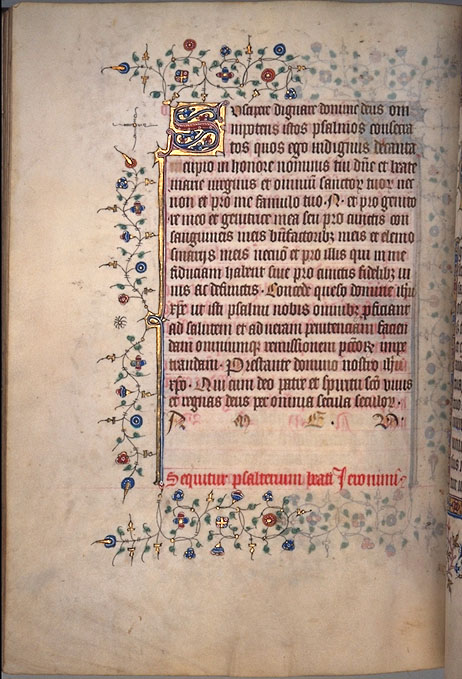 Suscipere dignare domine deus om
nipotens istos psalmos consecra
tos quos ego indignus decanta
re cupio in honore nominis tui dñe et beate
marie virginis et omnium sanctor tuor nec
non et pro me famulo tuo .N. et pro genito
re meo et genitrice mea seu pro cunctis con
sanguineis meis bñfactoribz meis et elemo
sinarijs meis necnō et pro illis qui in me
fiduciam habent siue pro cunctis fidelibz ui
uis ac defunctis. Concede queso domine ihu
xpe ut isti psalmi nobis omnibz proficiant
ad salutem et ad ueram penitenciam facien
dam omniumqz remissionem pctorz impe
trandam. Prestante domino nostro ihu
xpo. Qui cum deo patre et spiritu scō viuis
et regnas deus per omnia secula seculor.
A M E N
Sequitur psalterium beati Jeronimi